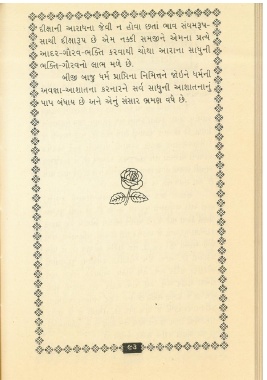 દીક્ષાની આરાધના જેવી ન હોવા છતા ભાવ સંયમરૂપ-
સાચી દીક્ષારૂપ છે એમ નક્કી સમજીને એમના પ્રત્યે
આદર-ગૌરવ-ભક્તિ કરવાથી ચોથા આરાના સાધુની
ભક્તિ-ગૌરવનો લાભ મળે છે.
બીજી બાજુ ધર્મ પ્રાપ્તિના નિમિત્તને જોઇને ધર્મની
અવજ્ઞા-આશાતના કરનારને સર્વ સાધુની આશાતનાનું
પાપ બંધાય છે અને એનું સંસાર ભ્રમણ વધે છે.
૯૩